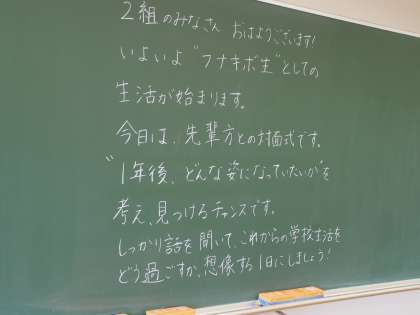 2組のみなさん おはようございます!
いよいよ"フナキボ生"としての
生活が始まります。
今日は、先輩方との対面式です。
"1年後、どんな姿になっていたいか"を
考え、見つけるチャンスです。
しっかり話を聞いて、これからの学校生活を
どう過ごすか、想像する1日にしましょう!